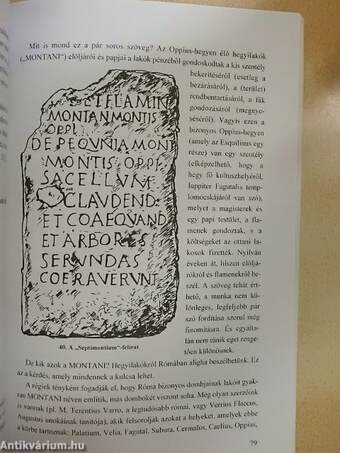 Mit is mond ez a pár soros szöveg? Az Oppius-hegyen élő hegyilakók
(„MONTANI") elöljárói és papjai a lakók pénzéből gondoskodtak a kis szentély
bekerítéséről (esetleg a
bezárásáról), a (terület)
rendbentartásáról, a fák
gondozásáról (megnye-
séséről). Vagyis ezen a
bizonyos Oppius-hegyen
(amely az Esquilinus egy
része) van egy szentély
(elképzelhető, hogy a
hegy fő kultuszhelyéről,
Iuppiter Fagutalis temp-
lomocskájáról van szó),
melyet a magisterek és
egy papi testület, a fla-
menek gondoztak, s a
költségeket az ottani la-
kosok fizették. Nyilván
éveken át, hiszen elöl-
járókról és flamenekről be-
szél. A szöveg tehát ért-
hető, a munka nem kü-
lönleges, legfeljebb pár
szó fordítása szorul még
finomításra. És egyálta-
lán nem tűnik eget renge-
tően különösnek.
ET FLAMIN
MONTAN MONTIS
OPPI
DE PEQVNIA MONT
MONTIS OPPI
SACELLVM
CLAVDEND
ET COAEQVAND
ET ARBORES
SERVNDAS
COERAVERVNT
40. A „Septimontium"-felirat
De kik azok a MONTANI? Hegyilakókról Rómában aligha beszélhetünk. Ez
az a kérdés, amely mindennek a kulcsa lehet.
A régiek tényként fogadják el, hogy Róma bizonyos dombjainak lakóit gyak-
van MONTANI néven említik, más dombokét viszont soha. Még olyan szerzőink
is vannak (pl. M. Terentius Varro, a legtudósabb római, vagy Verrius Flaccus,
Augustus unokáinak tanítója), akik felsorolják azokat a helyeket, amelyek ebbe
a körbe tartoznak: Palatium, Velia, Fagutal, Subura, Cermalus, Caelius, Oppius,
79
antikvárium.hu
Antikvárium.hu